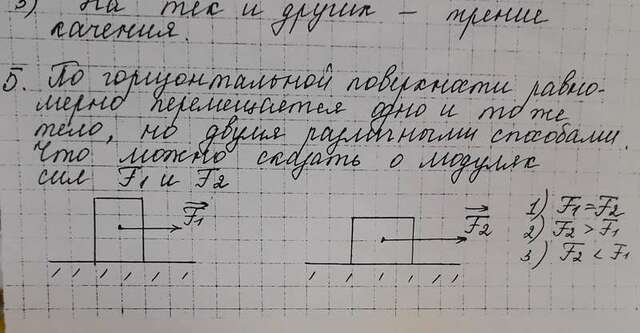 3) На тех и других — трение
качения.
5. По горизонтальной поверхности равно-
мерно перемещается одно и то же
тело, но двумя различными способами.
Что можно сказать о модулях
сил F1 и F2
F1
F2
1) F1 = F2
2) F2 > F1
3) F2 < F1